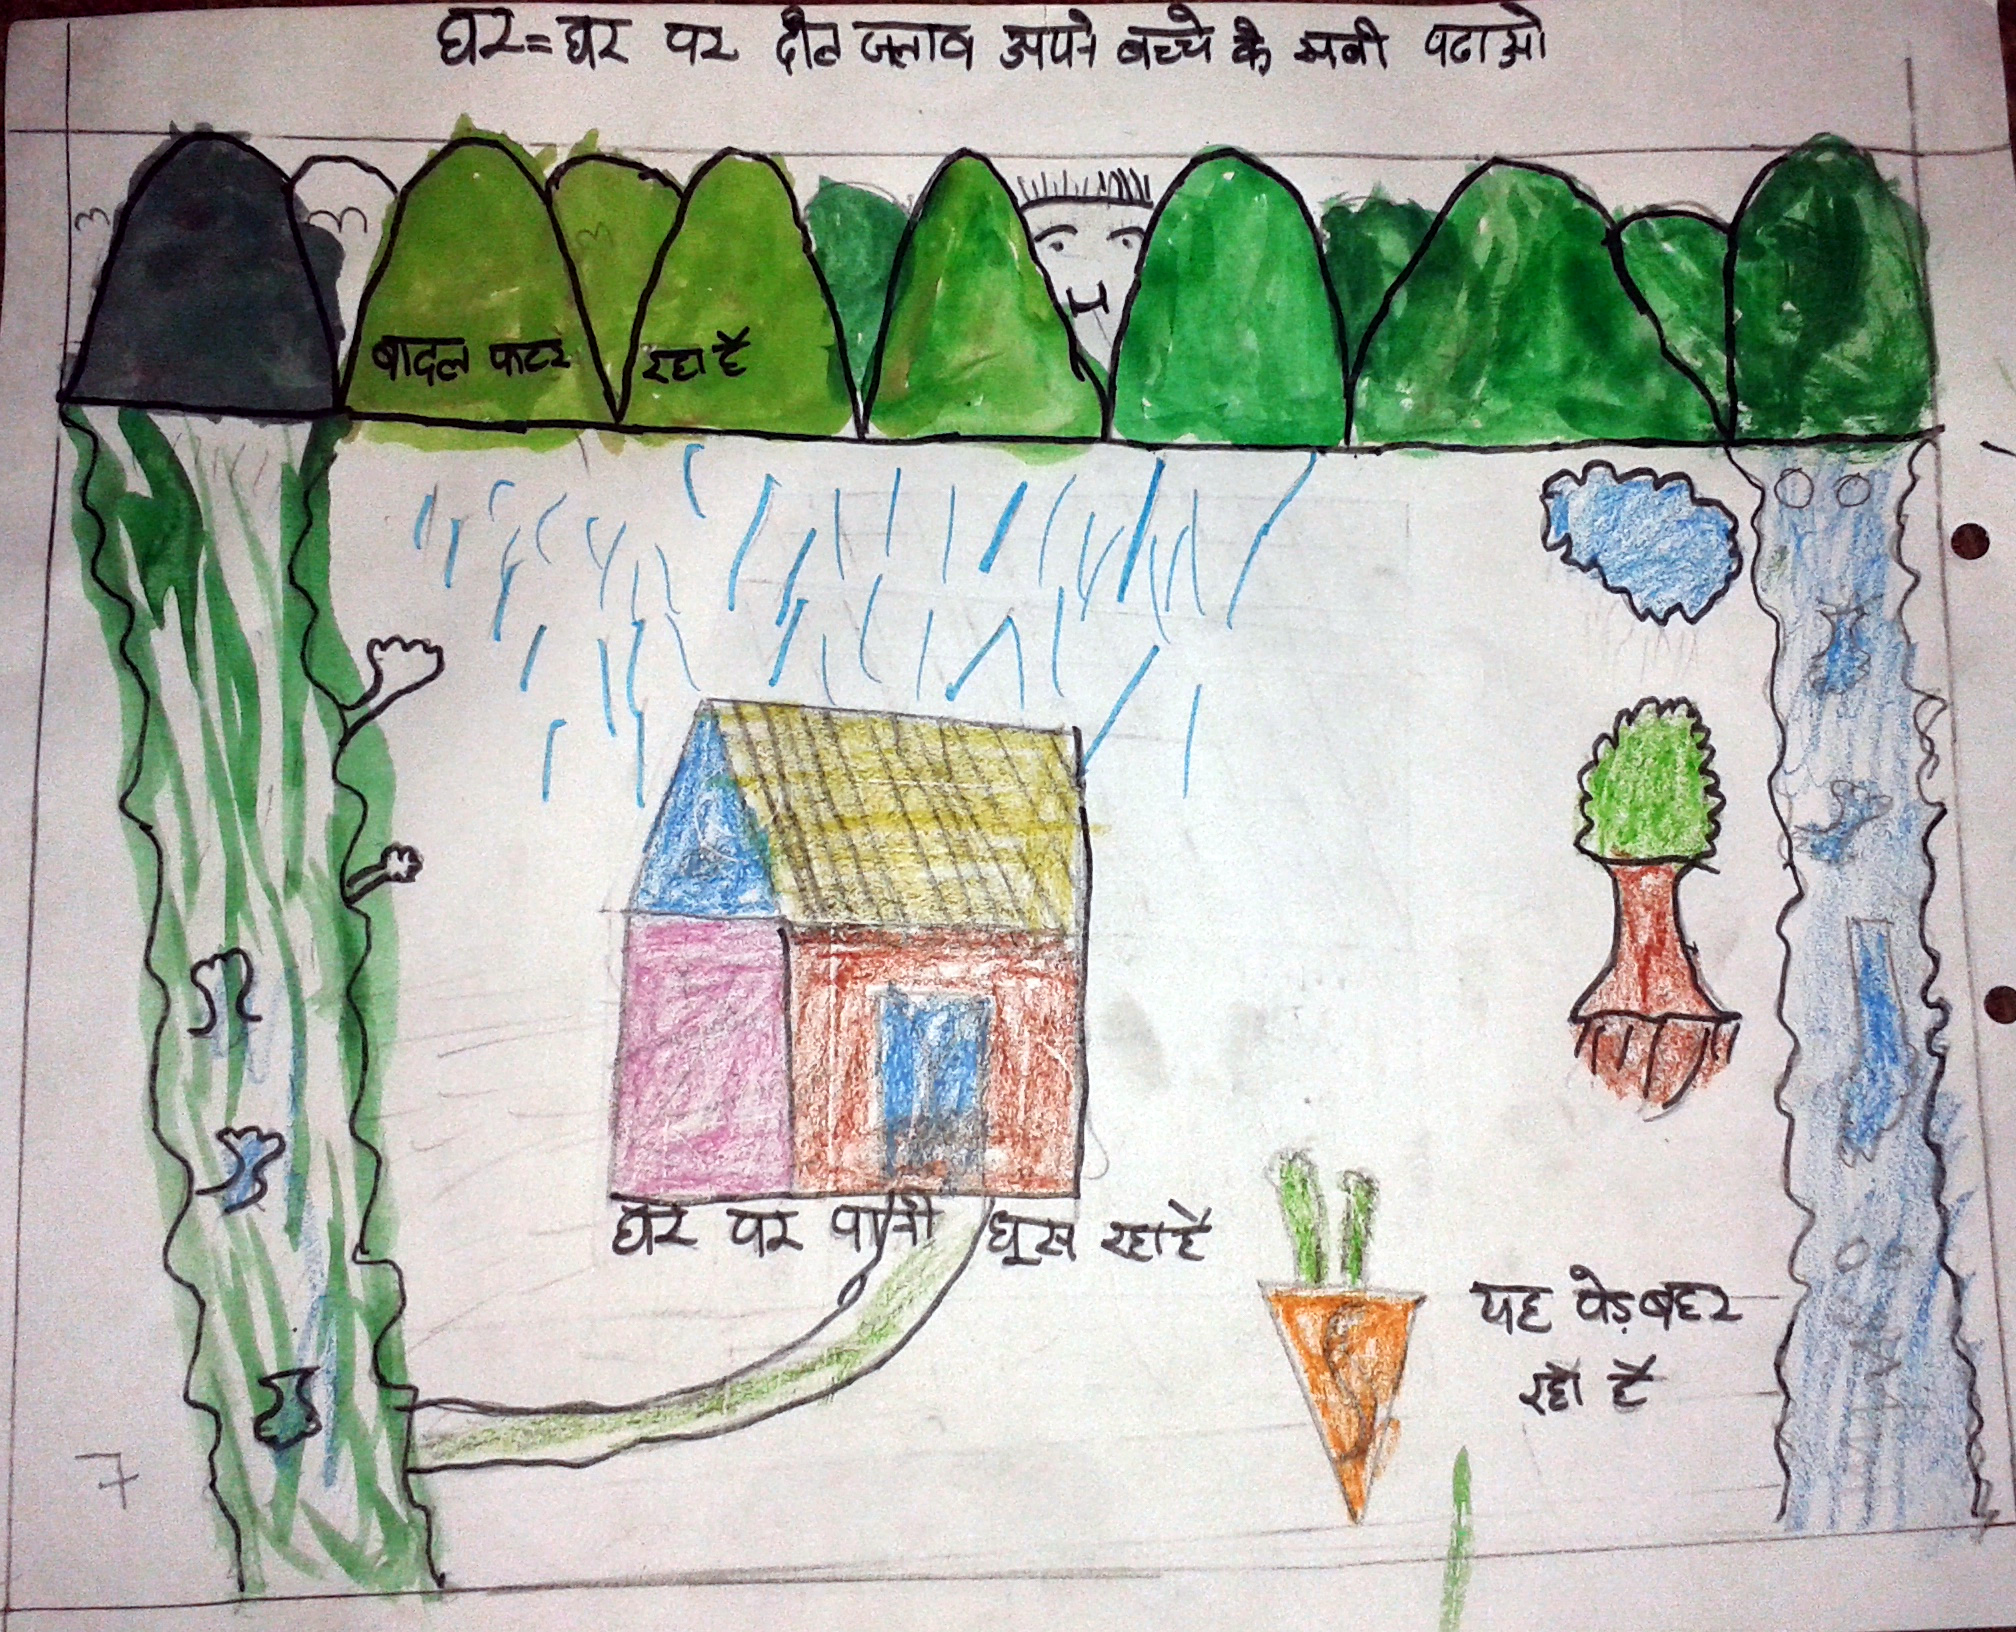 घर=घर पर दीन जलाव अपने बच्चे के सबी पढाओ
बादल फटर रहा है
घर पर पानी घूस रहा है
यह पेड़ बहर
रहा है
7